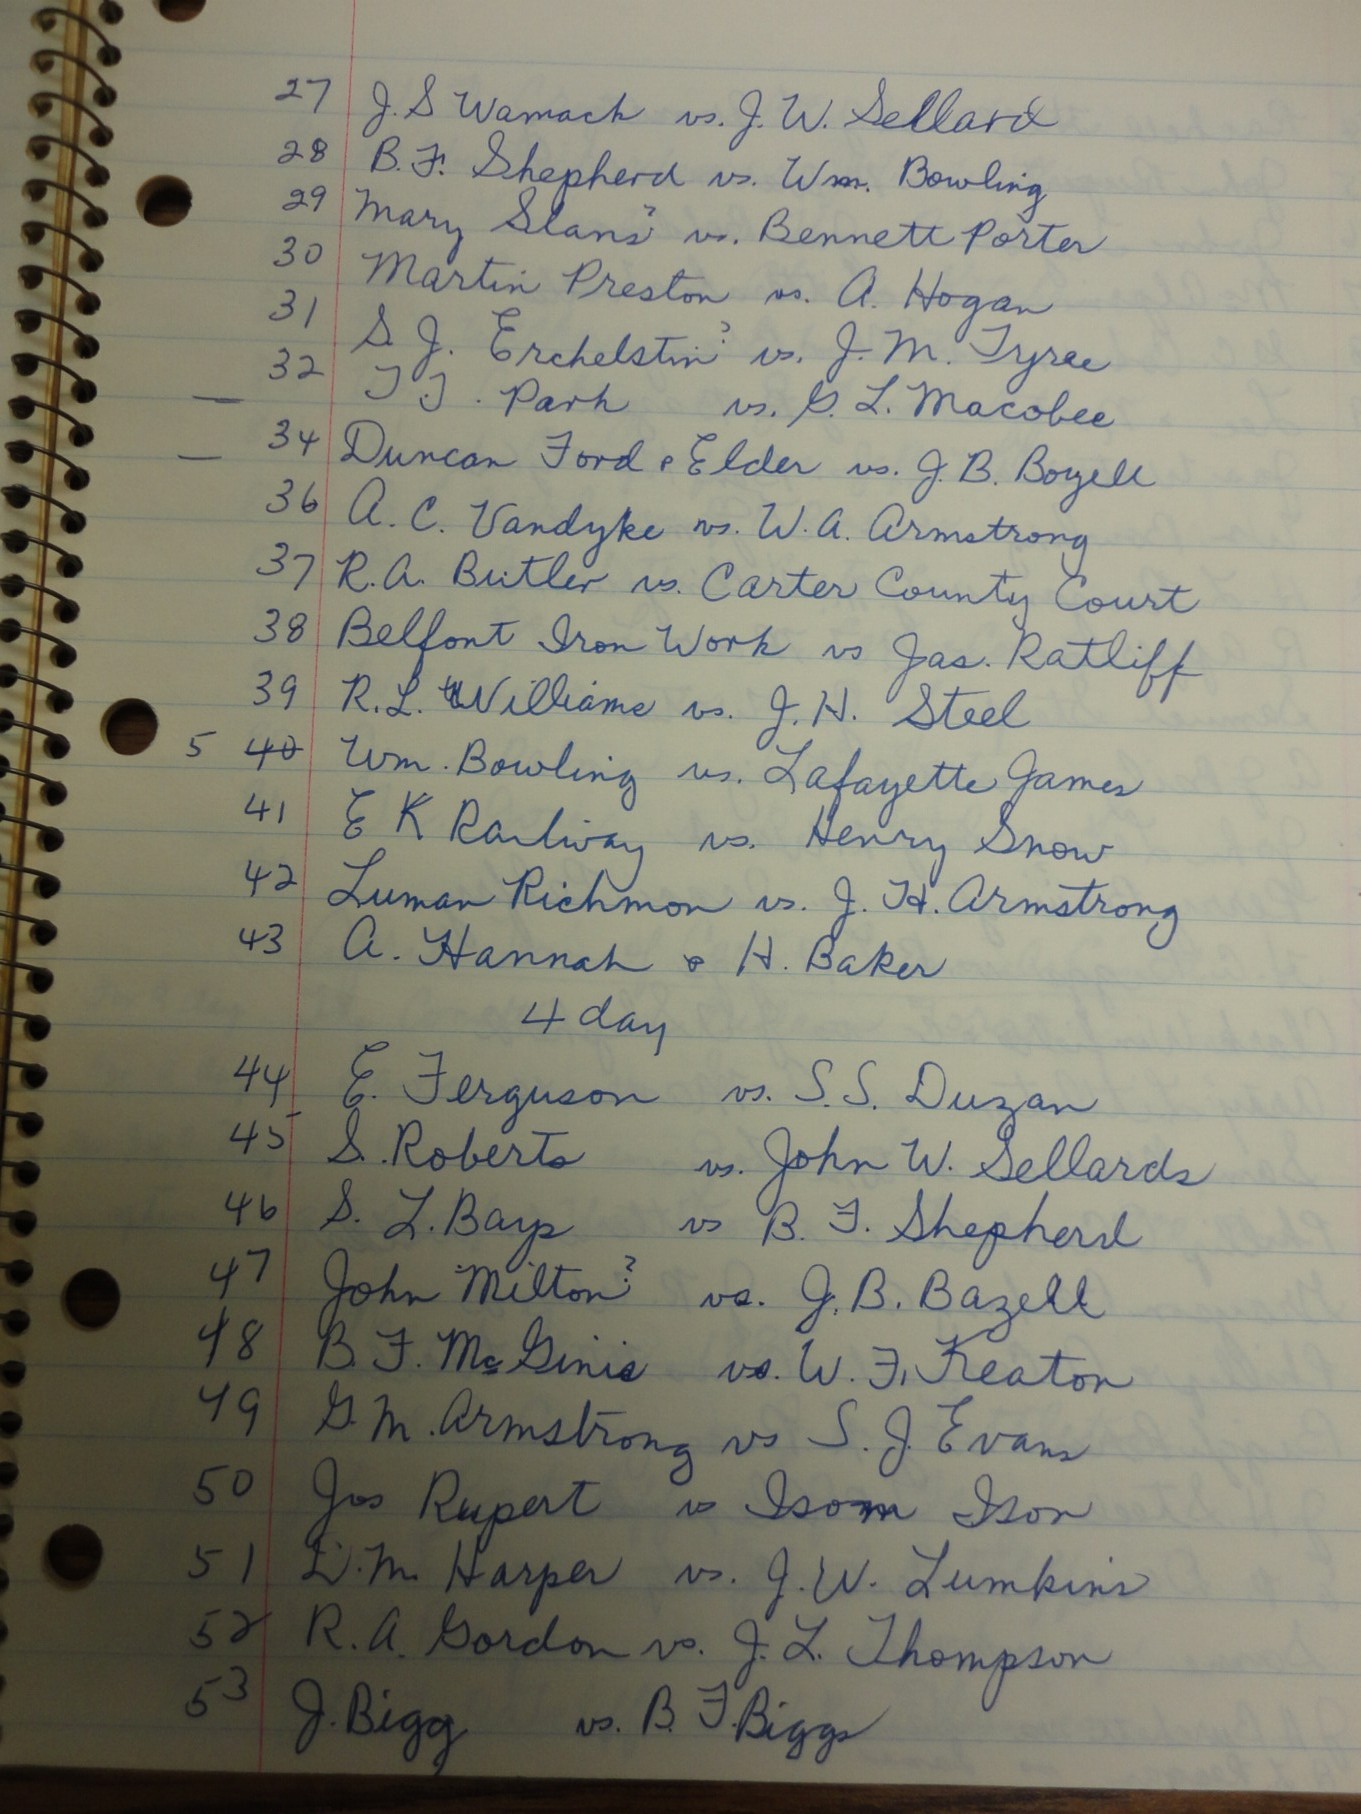 27 J. S Wamack vs. J. W. Sellard
28 B. F. Shepherd vs. Wm. Bowling
29 Mary Slans? vs. Bennett Porter
30 Martin Preston vs. A. Hogan
31 S. J. Erchelstin? vs. J. M. Tyree
32 T J. Park vs. G. L. Macobee
— 34 Duncan Ford & Elder vs. J. B. Bozell
— 36 A. C. Vandyke vs. W. A. Armstrong
37 R. A. Butler vs. Carter County Court
38 Belfont Iron Work vs Jas. Ratliff
39 R. L. Williams vs. J. H. Steel
5 40 Wm. Bowling vs. Lafayette James
41 E K Railway vs. Henry Snow
42 Luman Richmon vs. J. H. Armstrong
43 A. Hannah & H. Baker
4 day
44 E. Ferguson vs. S. S. Duzan
45 S. Roberts vs. John W. Sellards
46 S. L. Bays vs B. F. Shepherd
47 John Milton? vs. J. B. Bazell
48 B. F. McGinis vs. W. F. Keaton
49 G. M. Armstrong vs S. J. Evans
50 Jos Rupert vs Isom Ison
51 D. M. Harper vs. J. W. Lumkins
52 R. A. Gordon vs. J. L. Thompson
53 J. Bigg vs. B. F. Biggs